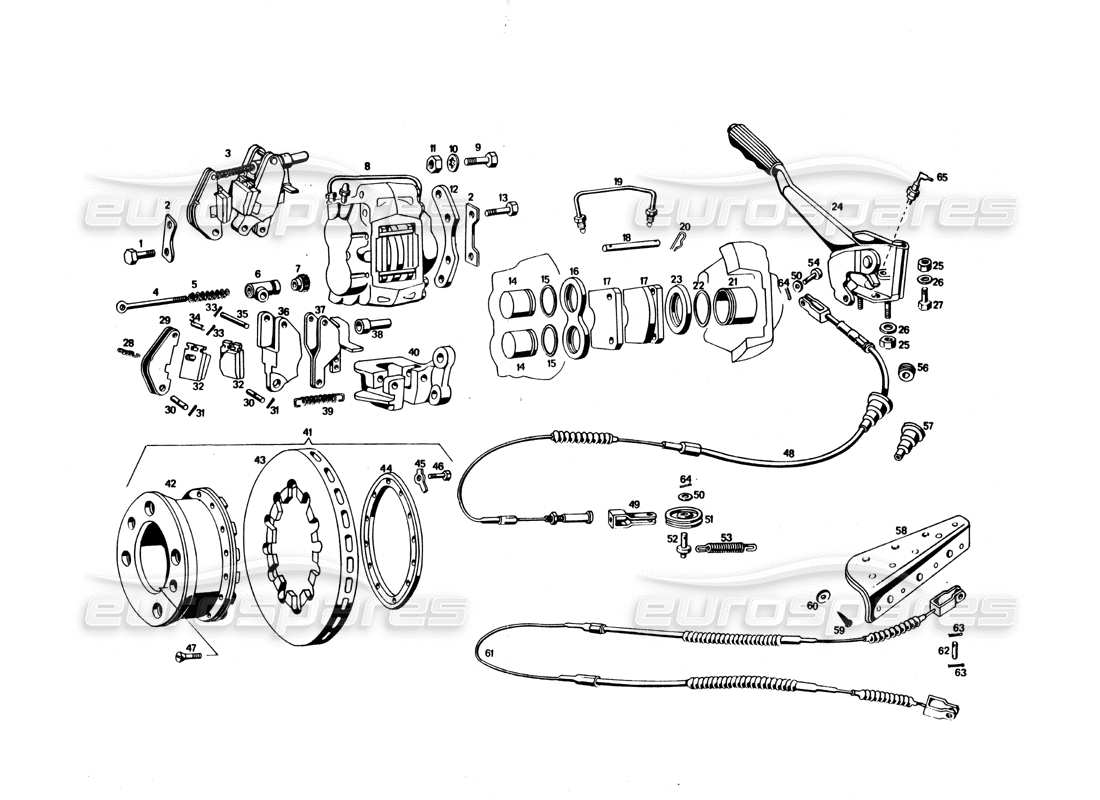 eurospares eurospares
11 10 9
3 8
2 12 2 13
1
19
65
24
20
18
54
50
64
25
26
27
26
25
6 7
5
4
14 15 16 17 17 23 22 21
33
34 35 36 37
33 38
29
28
32 32
40
14 15
56
30 31 30 31 39
57
41
48
42 43 44 45 46
64
50
49
51
52 53
58
eurospares eurospares
60
59
63
62
63
61
47